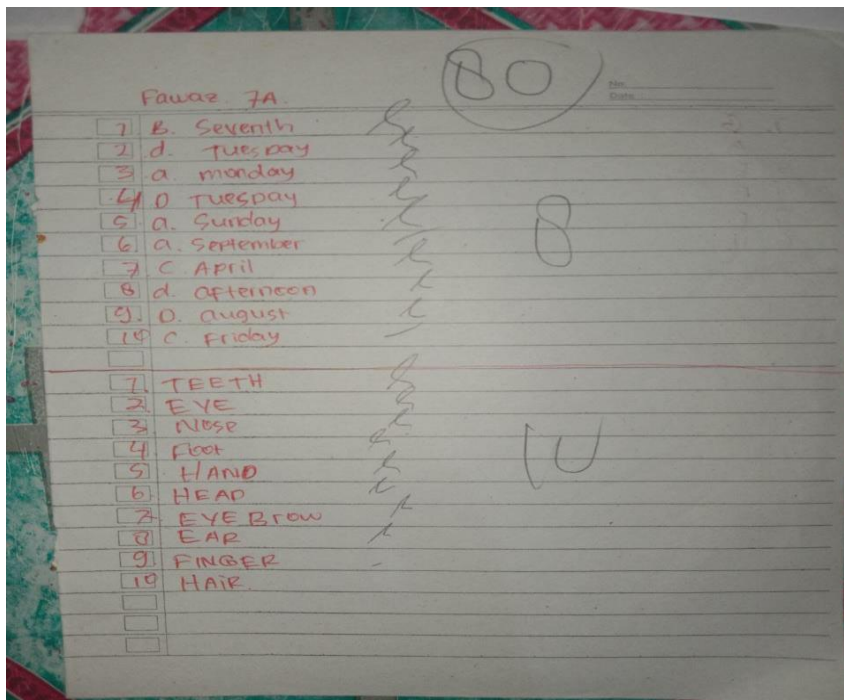 80
No.
Date
Fawaz. 7A.
1 B. Seventh
2 d. Tuespay
3 a. monday
4 D Tuespay
5. a. Sunday
6. a. September
7 C April
8 d. afternoon
9. D. august
10 C. Friday
8
1. TEETH
2 EYE
3 Nose
4 Foot
5 HAND
6 HEAD
7 EYE Brow
8 EAR
9 FINGER
10 HAIR.